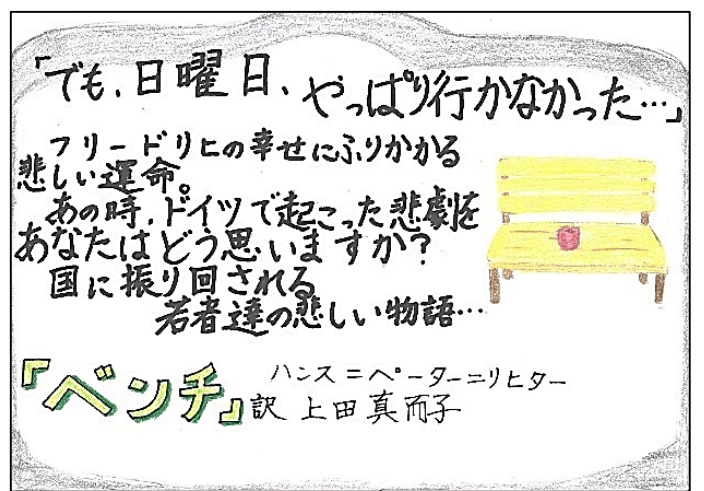 「でも、日曜日、やっぱり行かなかった…」
フリードリヒの幸せにふりかかる
悲しい運命。
あの時、ドイツで起こった悲劇を
あなたはどう思いますか？
国に振り回される
若者達の悲しい物語…
『ベンチ』
ハンス＝ペーター＝リヒター
訳 上田真而子